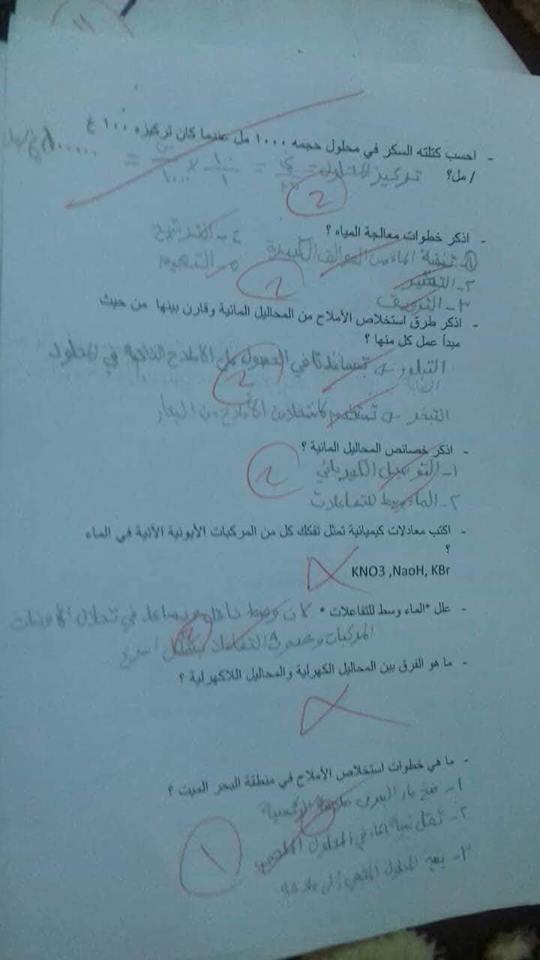 ١١
- احسب كتلته السكر في محلول حجمه ١٠٠٠ مل عندما كان تركيزه ١٠٠ غ
/ مل؟
تركيز المحلول = ك/ح = ١٠/١ × س/١٠٠٠ =
2
- اذكر خطوات معالجة المياه ؟
١- تنقية الماء من العوالق الكبيرة
٤- الترشيح
٢- التخثير
٥- التعقيم
٣- الترويق
2
- اذكر طرق استخلاص الأملاح من المحاليل المائية وقارن بينها من حيث
مبدأ عمل كل منها ؟
التبلور تساعدنا في الحصول على الأملاح الذائبة في المحلول
2
التبخر تستخدم لاستخلاص الأملاح من البحار
- اذكر خصائص المحاليل المائية ؟
١- التوصيل الكهربائي
2
٢- الماء وسط للتفاعلات
- اكتب معادلات كيميائية تمثل تفكك كل من المركبات الأيونية الآتية في الماء
؟
KNO3 ,NaoH, KBr
- علل "الماء وسط للتفاعلات " لأن وسط يساعد في تحلل الأيونات
المركبات وحدوث التفاعلات بشكل أسرع
2
- ما هو الفرق بين المحاليل الكهرلية والمحاليل اللاكهرلية ؟
- ما هي خطوات استخلاص الأملاح في منطقة البحر الميت ؟
١- ضخ ماء البحر
٢- تقل نسبة الماء في المحلول
٣- المحلول المتبقي إلى ملاحة
١